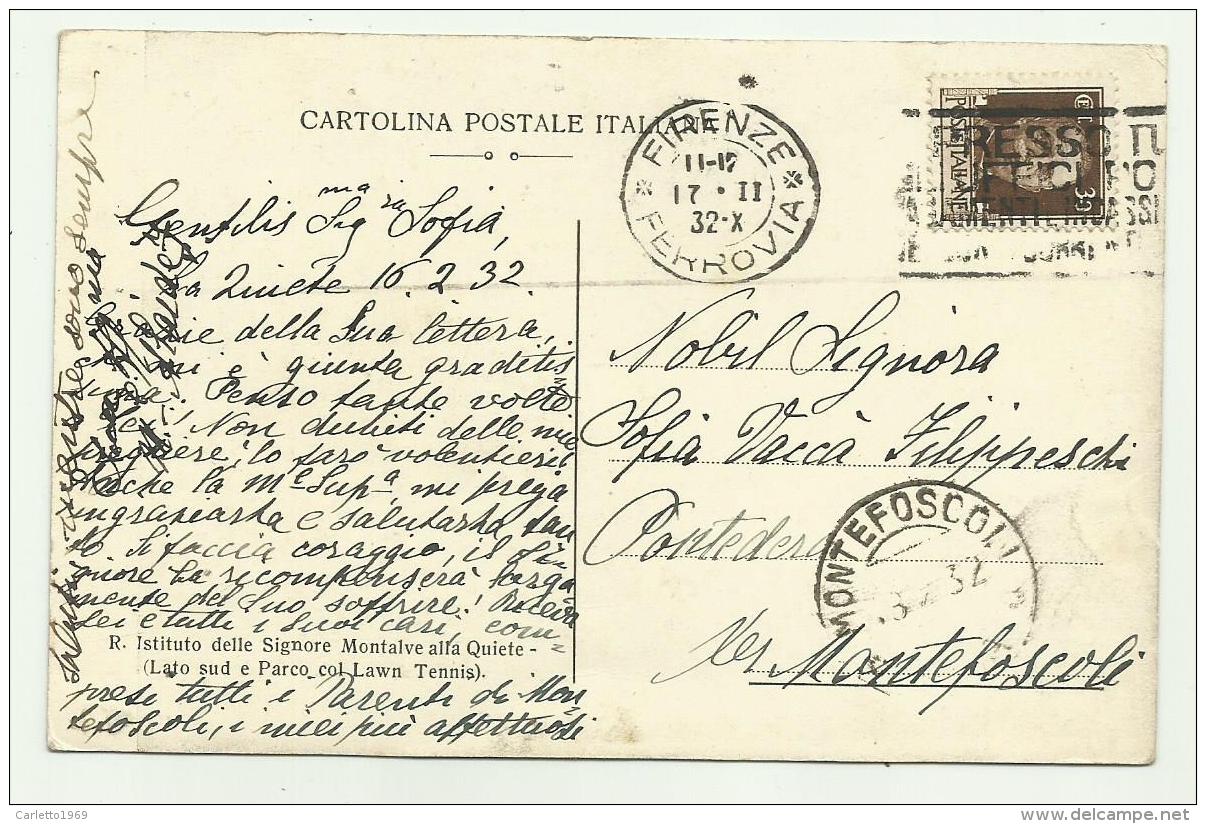 CARTOLINA POSTALE ITALIANA
Gentilis ma Sig ra Sofia,
La Quiete 16.2.32.
Grazie della Sua lettera,
che mi è giunta graditis
sima. Penso tante volte
a Lei! Non dubiti delle mie
preghiere, lo farò volentieri!
Anche la Me Supa, mi prega
ringraziarla e salutarla tan
to. Si faccia coraggio, il Si-
gnore La ricompenserà larga
mente del Suo soffrire! Riceva
Lei e tutti i Suoi cari, com-
R. Istituto delle Signore Montalve alla Quiete -
(Lato sud e Parco col Lawn Tennis).
presi tutti i Parenti di Mon
tefoscoli, i miei più affettuosi
saluti sono sempre
FIRENZE
11-12
17 • II
32-X
FERROVIA
POSTE ITALIANE
30
Nobil Signora
Sofia Vaccà Filippeschi
Pontedera
per Montefoscoli
MONTEFOSCOLI
32
Carletto1969
delcampe.net